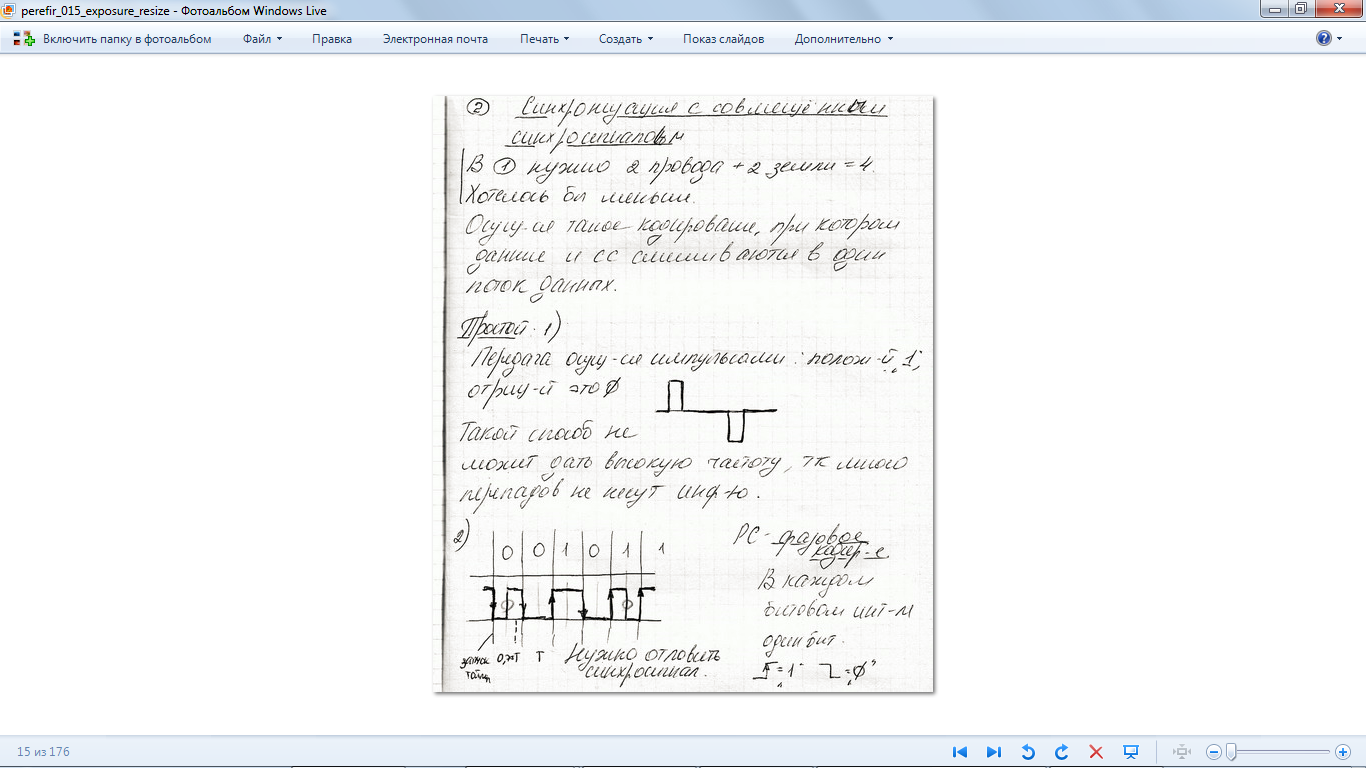 perefir_015_exposure_resize - Фотоальбом Windows Live
Включить папку в фотоальбом Файл Правка Электронная почта Печать Создать Показ слайдов Дополнительно
② Синхронизация с совмещёнными
синхросигналом
В ① нужно 2 провода + 2 земли = 4.
Хотелось бы меньше.
Осущ-ся такое кодирование, при котором
данные и СС смешиваются в один
поток данных.
Простой 1)
Передача осущ-ся импульсами: полож-й "1",
отриц-й это 0
Такой способ не
может дать высокую частоту, тк много
перепадов не несут инф-ю.
2)
0 0 1 0 1 1
PC - фазовое
кодир-е
В каждом
битовом инт-м
один бит.
0 0
0,75T T Нужно отловить
синхросигнал.
= "1" = "0"
15 из 176